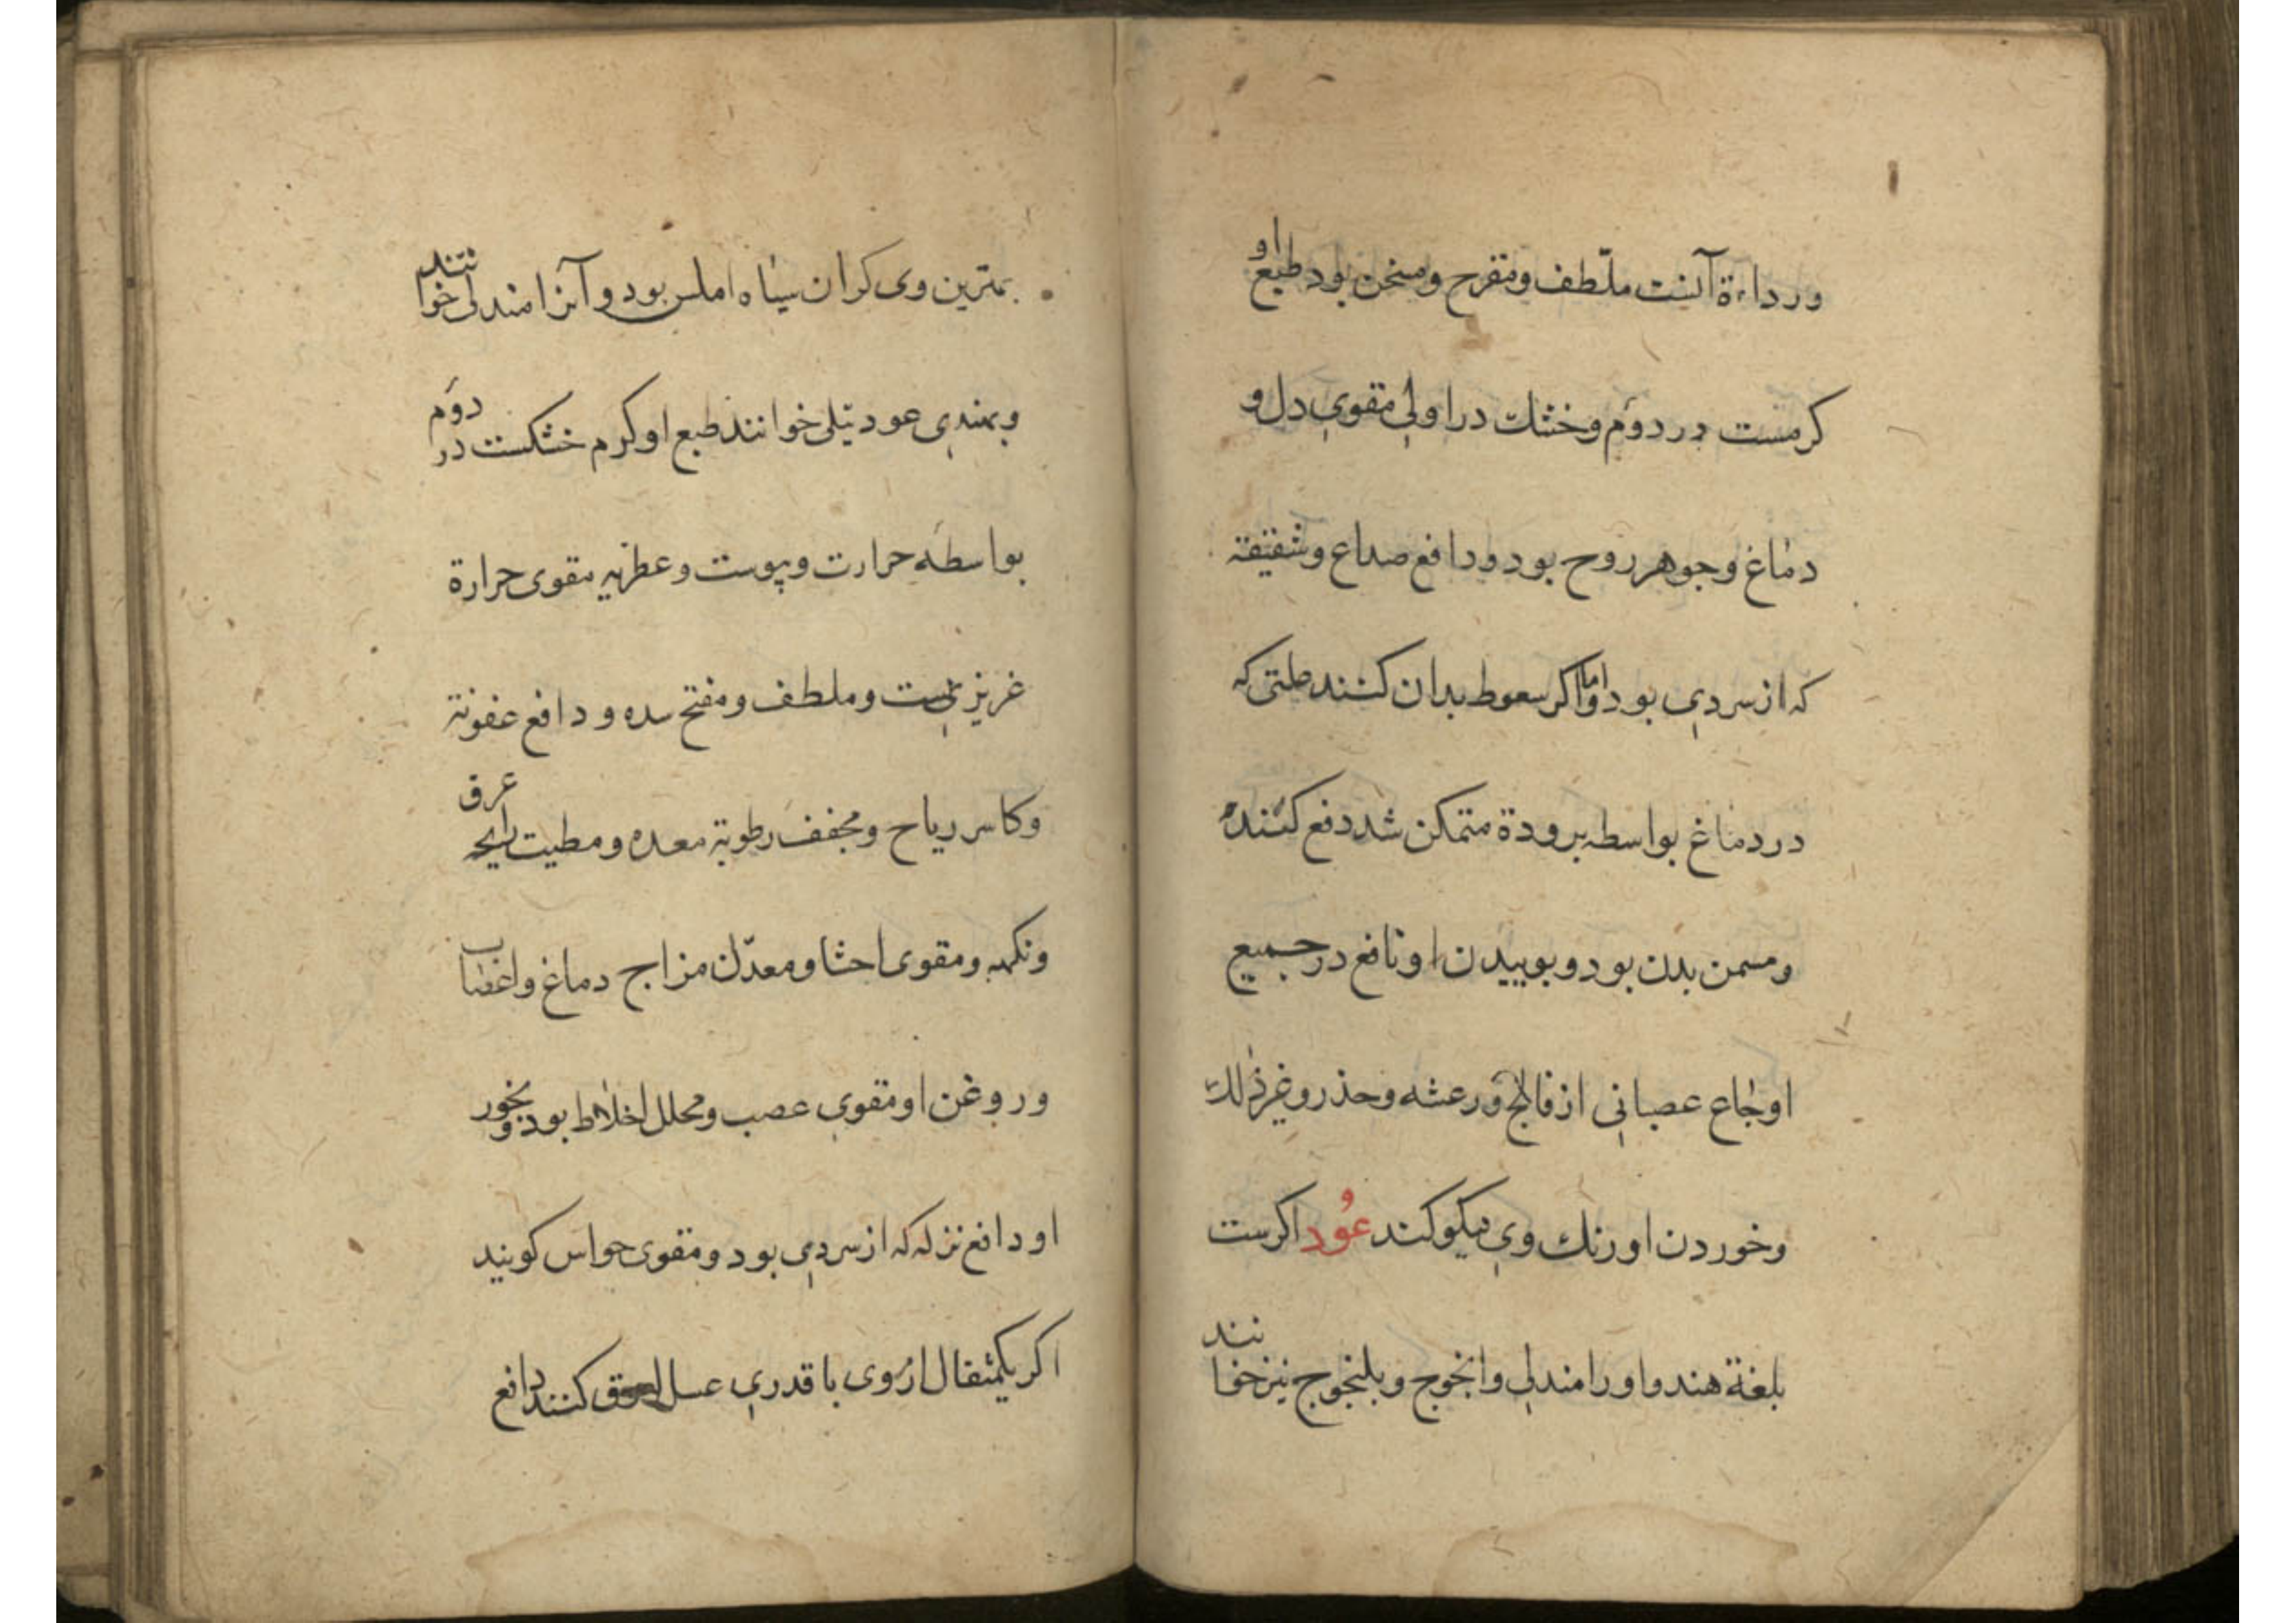 ورداءة آنست ملّطف ومقرح ومسخن بود طبع او
کرمست در دوَم وخشك در اولی مقوی دل و
دماغ وجوهر روح بود ودافع صداع وشقیقة
که از سردی بود واما اکر سعوط بدان کنند علتی که
در دماغ بواسطه برودة متمکن شد دفع کننده
ومسمن بدن بود وبوییدن او نافع در جمیع
اوجاع عصبانی از فالج ورعشه وحذر وغیر ذلك
وخوردن او رنك وی نیکو کند عُود اکرست
بلغة هند واو را مندلی وانجوج ویلنجوج نیز خوانند
بهترین وی کران سیاه املس بود و آنرا مندلی خوانند
وبهندی عود تیلی خوانند طبع او کرم خشکست در دوَم
بواسطه حرارت ویبوست وعطریه مقوی حرارة
غریزیست وملطف ومفتح سده و دافع عفونة
وکاسر ریاح ومجفف رطوبة معده ومطیب رایحه عرق
ونکهه ومقوی احشا ومعدّل مزاج دماغ واعصاب
وروغن او مقوی عصب ومحلل اخلاط بود وبخور
او دافع نزله که از سردی بود ومقوی حواس کویند
اکر یکمثقال از وی با قدری عسل لعوق کنند دافع